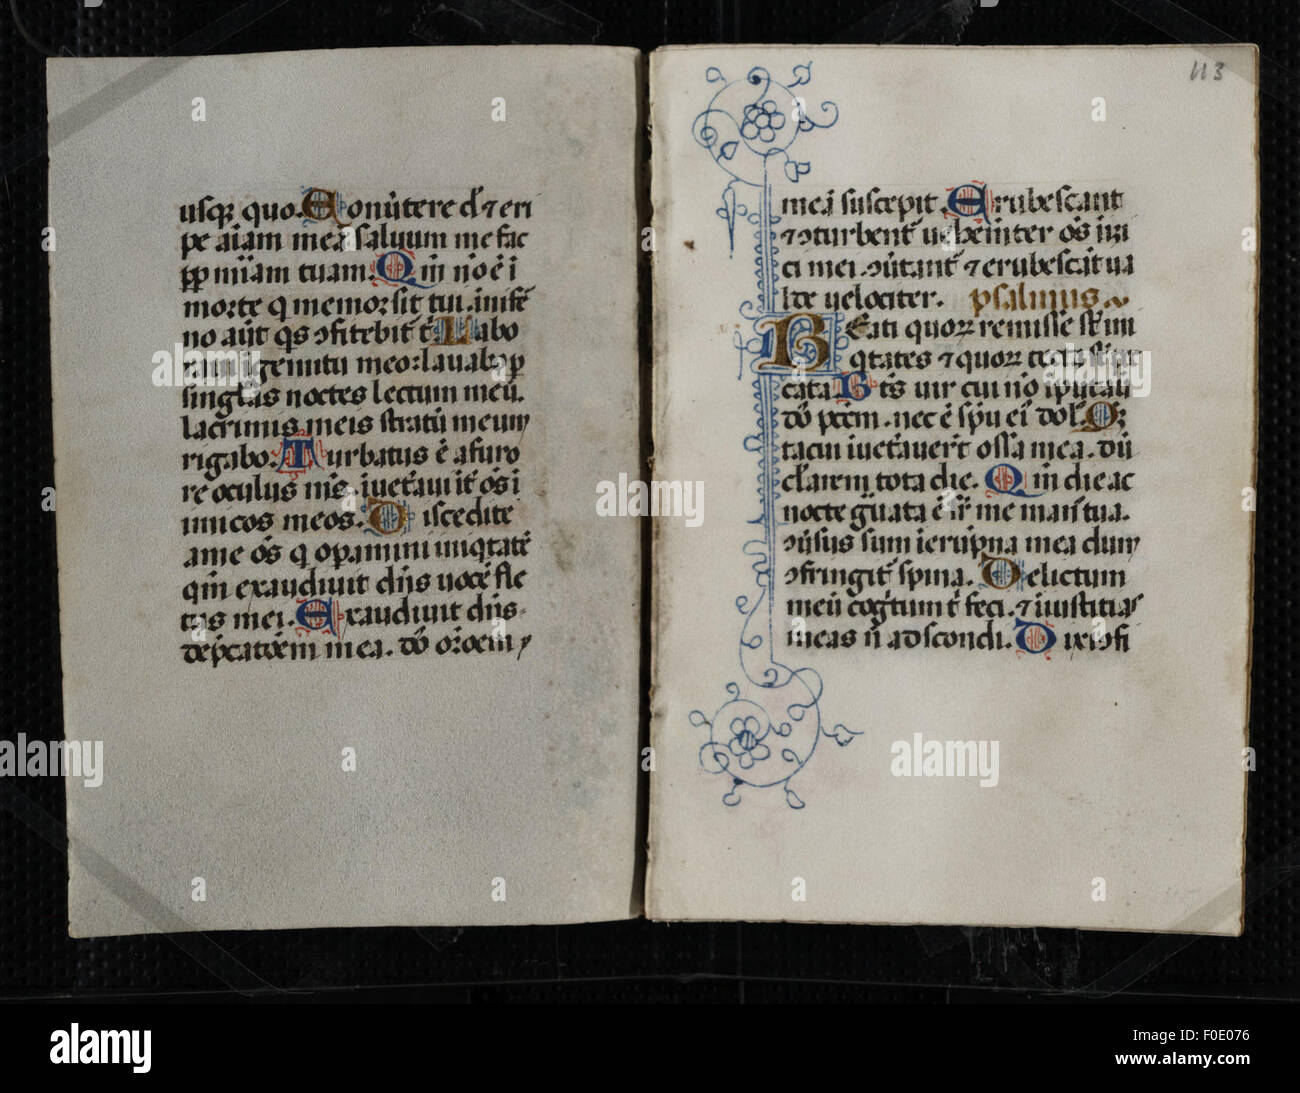 usqz quo. Conũtere dẽ ⁊ eri
pe aiam meã saluum me fac
ꝓp miãm tuam. Qm nõ ẽ i
morte q memor sit tui. ĩ ĩfẽ
no aũt qͥs ↄfitebit̃ t̃ Labo
raui ĩ gemitu meo: lauabo ꝑ
singl̃as noctes lectum meũ.
lacrimis meis stratũ meum
rigabo: Turbatus ẽ a furo
re oculus m̃s. iuet̃aui it̃ õs i
imicos meos. Discedite
a me õs q opamini iniq̃tatẽ
qm̃ exaudiuit dñs uocẽ fle
tus mei. Exaudiuit dñs
dep̃catõem mea. dñs or̃oem
113
meã suscepit. Erubescant
⁊ ↄturbent̃ uehemẽter õs ĩmi
ci mei. ↄũtant̃ ⁊ erubescãt ua
lde uelociter. psalmus
BEati quoꝝ remisse st̃ ini
q̃tates ⁊ quoꝝ tecta st̃ pec
cata Bt̃s uir cui nõ ĩputauĩ
dñs pcc̃m. nec ẽ ĩ sp̃u ei dol.̃ Qz
tacui iuet̃auer̃t ossa mea. dũ
cl̃arem tota die. Qm ĩ die ac
nocte g̃uata ẽ sr̃ me man̾ tua.
ↄũsus sum ĩ erũpna mea dum
ↄfringit̃ spina. Delictum
meũ cog̃tum t̃ feci. ⁊ iniustitiaz
meas ñ adscondi. Dixi ↄfi
alamy
alamy stock photo
Image ID: F0E076
www.alamy.com